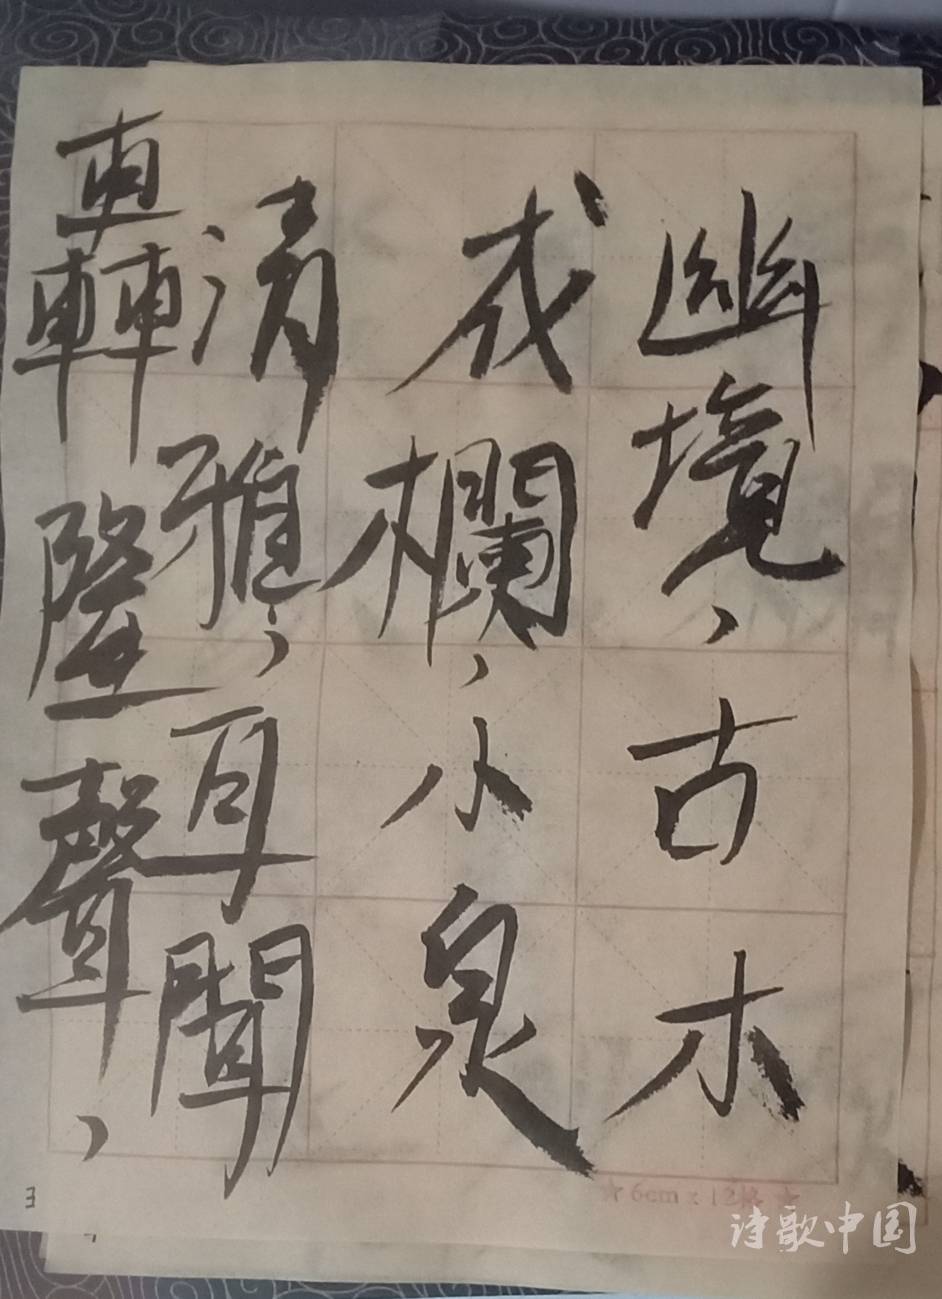 幽境，古木
成欄，小泉
清雅，耳聞
轟隆聲，
☆6cm×12格☆
诗歌中国